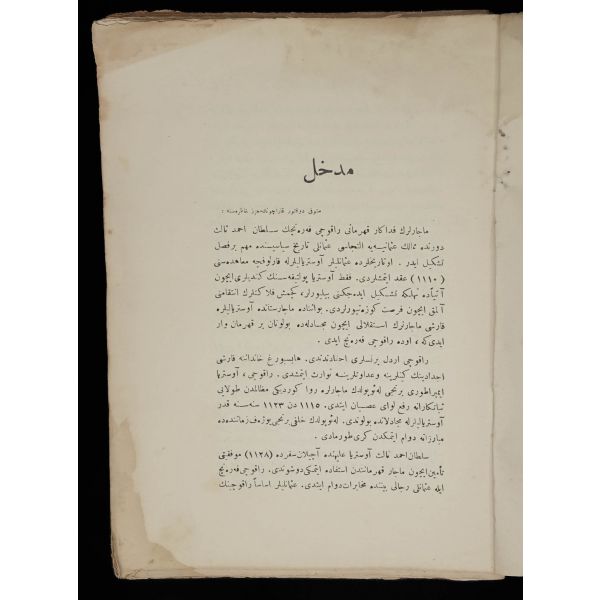 مدخل
متوفی دوقتور قاراچونك معزز خاطره‌سنه :
ماجارلرك فداكار قهرمانی راقوچی فه‌ره‌نچك سلطان احمد ثالث
دورنده ممالك عثمانیه‌یه التجاسی عثمانلی تاریخ سیاسیسنده مهم بر فصل
تشكیل ایدر . او تاریخلرده عثمانلیلر آوستریالیلرله قارلوفچه معاهده‌سنی
( ١١١٠ ) عقد ایتمشلردی . فقط آوستریا پولتیقه‌سنك كندیلری ایچون
آتیاً ده تهلكه تشكیل ایده‌جكنی بیلیورلر ، كچمش فلاكتلرك انتقامنی
آلمق ایچون فرصت كوزه‌تیورلردی . بو اثناده ماجارستانده آوستریالیلره
قارشی ماجارلرك استقلالی ایچون مجادله‌ده بولونان بر قهرمان وار
ایدی كه ، اوده راقوچی فه‌ره‌نچ ایدی .
راقوچی اردل پرنسلری احفادندندی . هابسبورغ خاندانه قارشی
اجدادینك كینلرینه و عداوتلرینه توارث ایتمشدی . راقوچی ، آوستریا
ایمپراطوری برنجی له‌ئوپولدك ماجارلره روا كوردیكی مظالمدن طولایی
ثباتكارانه رفع لوای عصیان ایتدی . ١١١٥ دن ١١٢٣ سنه‌سنه قدر
آوستریالیلرله مجادلاتده بولوندی . له‌ئوپولدك خلفی برنجی یوژه‌ف زماننده‌ده
مبارزاته دوام ایتمكدن كری طورمادی .
سلطان احمد ثالث آوستریا علیهنده آچیلان سفرده ( ١١٢٨ ) موفقیتی
تأمین ایچون ماجار قهرمانندن استفاده ایتمكی دوشوندی . راقوچی فه‌ره‌نچ
ایله عثمانلی رجالی بیننده مخابرات دوام ایتدی . عثمانلیلر اساساً راقوچینك